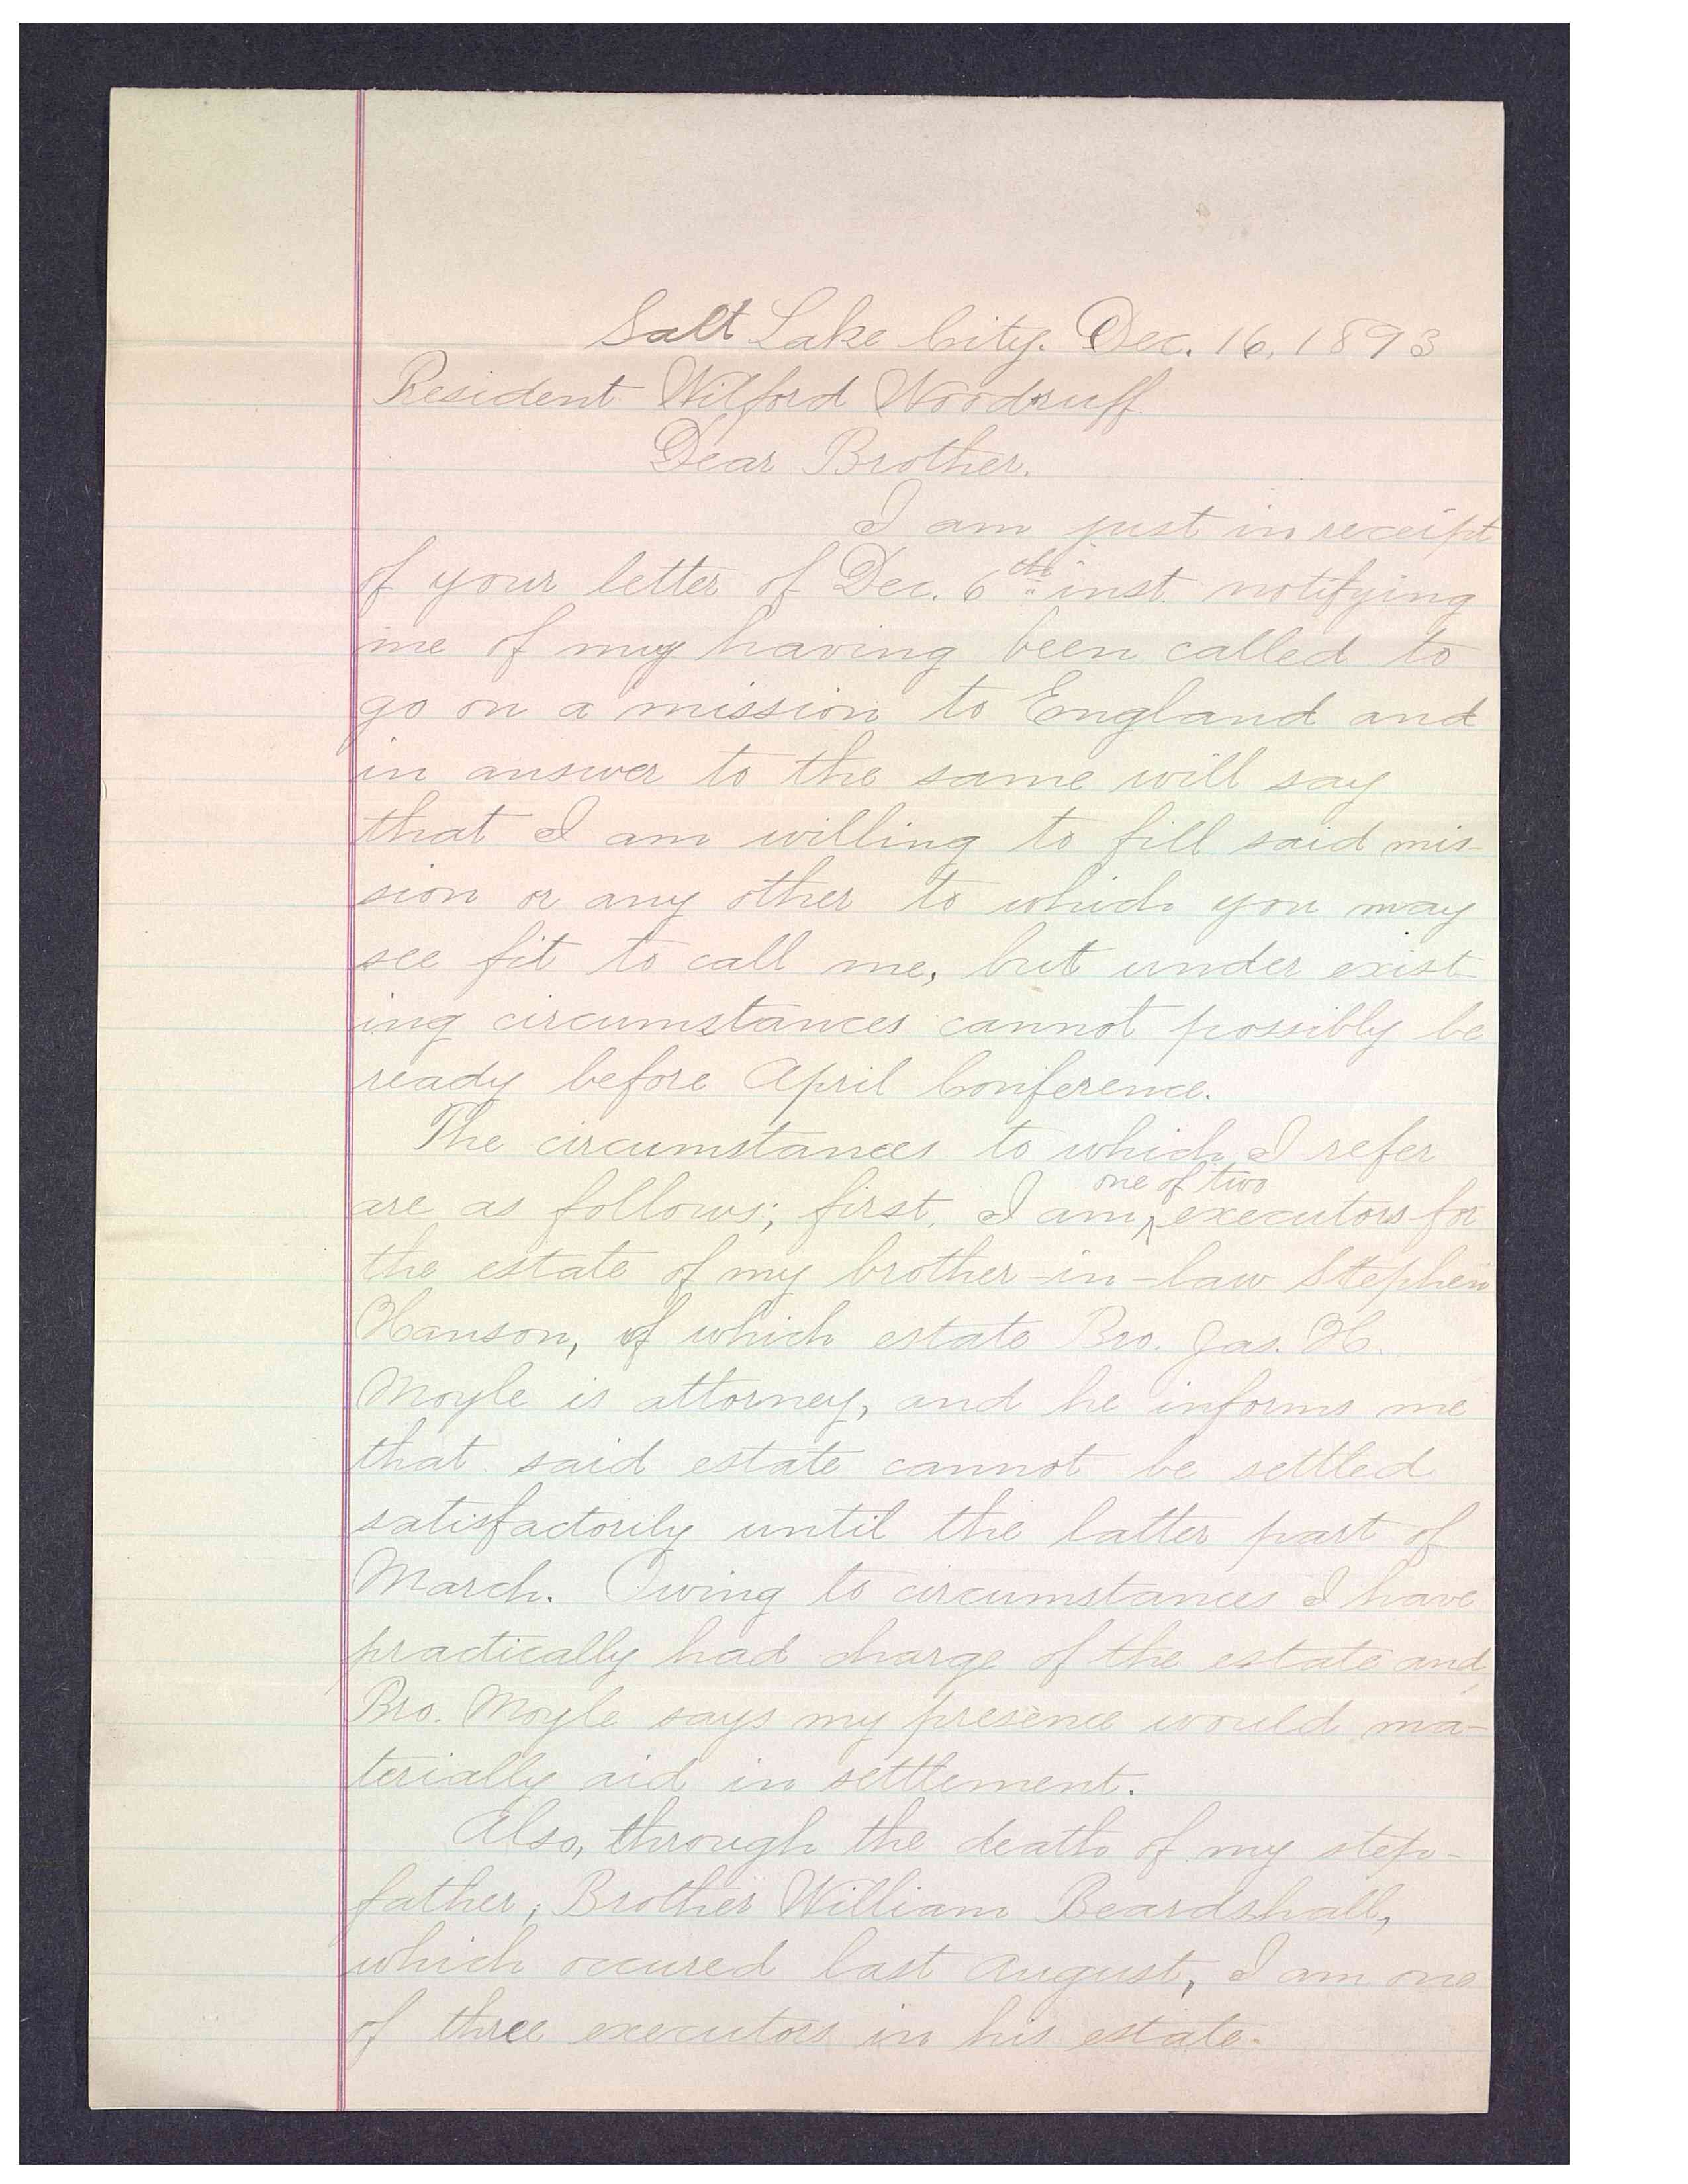 Salt Lake City. Dec. 16, 1893
President Wilford Woodruff
Dear Brother.
I am just in receipt
of your letter of Dec. 6th inst. notifying
me of my having been called to
go on a mission to England and
in answer to the same will say
that I am willing to fill said mis-
sion or any other to which you may
see fit to call me, but under exist-
ing circumstances cannot possibly be
ready before April Conference.
The circumstances to which I refer
one of two
are as follows; first, I am ^ executors for
the estate of my brother-in-law Stephen
Hanson, of which estate Bro. Jas. H.
Moyle is attorney, and he informs me
that said estate cannot be settled
satisfactorily until the latter part of
March. Owing to circumstances I have
practically had charge of the estate and
Bro. Moyle says my presence would ma-
terially aid in settlement.
Also, through the death of my step-
father, Brother William Beardshall,
which occured last August, I am one
of three executors in his estate.